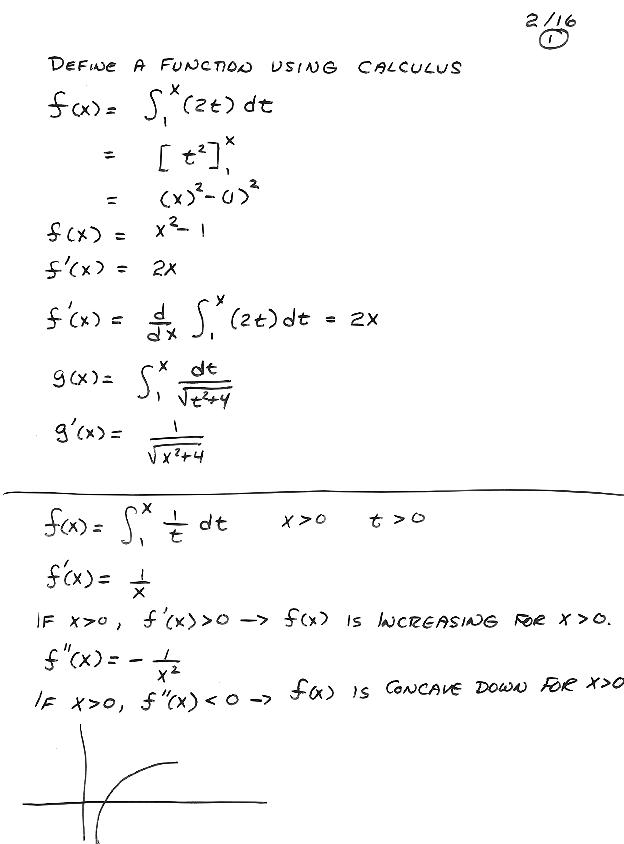 2/16
①
DEFINE A FUNCTION USING CALCULUS
f(x) = ∫₁ˣ (2t) dt
= [t²]₁ˣ
= (x)² - (1)²
f(x) = x² - 1
f'(x) = 2x
f'(x) = d/dx ∫₁ˣ (2t) dt = 2x
g(x) = ∫₁ˣ dt/√(t²+4)
g'(x) = 1/√(x²+4)
f(x) = ∫₁ˣ 1/t dt x>0 t>0
f'(x) = 1/x
IF x>0, f'(x)>0 → f(x) IS INCREASING FOR x>0.
f"(x) = - 1/x²
IF x>0, f"(x)<0 → f(x) IS CONCAVE DOWN FOR x>0